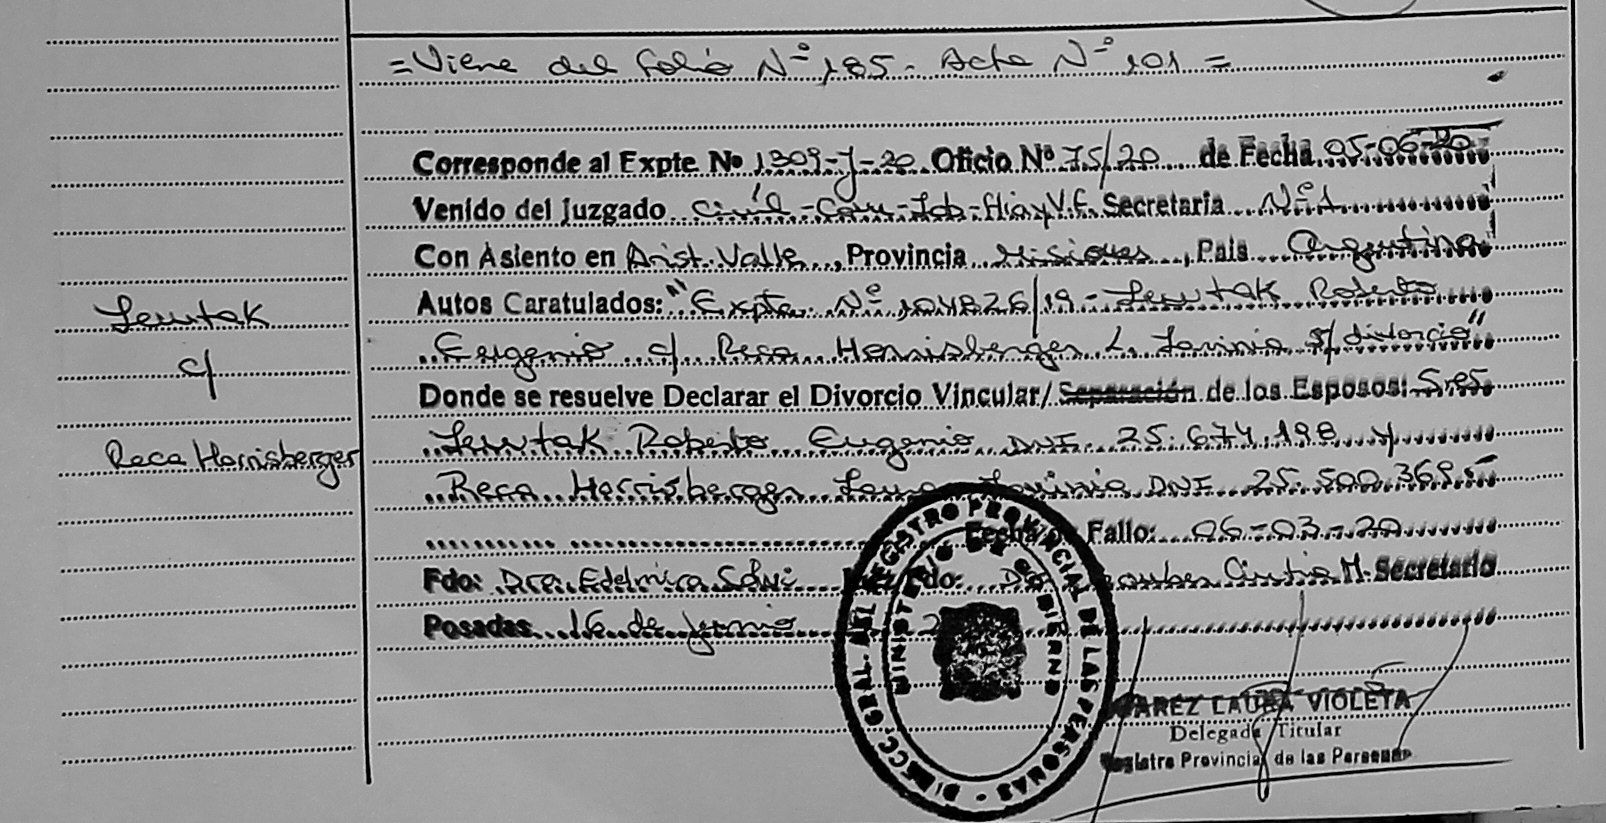 =Viene del folio Nº 185 - Acta Nº 101 =
Corresponde al Expte Nº 1309-J-20 Oficio Nº 75/20 de Fecha 05-06-20
Venido del Juzgado Civil-Com-Lab-Flia y V.F. Secretaria Nº1
Con Asiento en Arist. Valle, Provincia Misiones, Pais Argentina
Autos Caratulados: "Expte. Nº 104826/19 - Lewtak Roberto
Lewtak
Eugenio c/ Reca Horrisberger L. Lavinia s/ divorcio"
c/
Donde se resuelve Declarar el Divorcio Vincular/Separación de los Esposos: Sres.
Lewtak Roberto Eugenio DNI. 25.674.198 y
Reca Horrisberger
Reca Horrisberger Laura Lavinia DNI 25.500.369.
Fecha de Fallo: 06-03-20
Fdo: Dra. Edelmira Fdo: Cintia M. Secretario
Posadas 16 de junio
DIRECC. GRAL. DEL REGISTRO PROVINCIAL DE LAS PERSONAS
MINISTERIO DE GOBIERNO
LAURA VIOLETA
Delegada Titular
Registro Provincial de las Personas